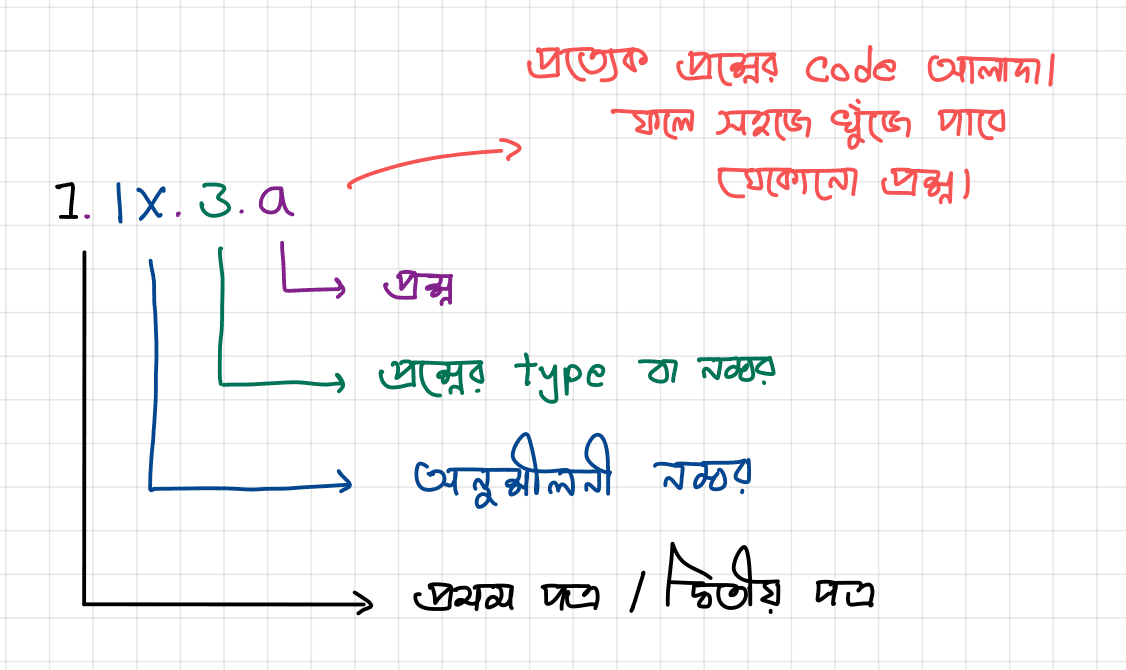 প্রত্যেক প্রশ্নের code আলাদা।
ফলে সহজে খুঁজে পাবে
যেকোনো প্রশ্ন।
1. IX. 3. a
প্রশ্ন
প্রশ্নের type বা নম্বর
অনুশীলনী নম্বর
প্রথম পত্র / দ্বিতীয় পত্র